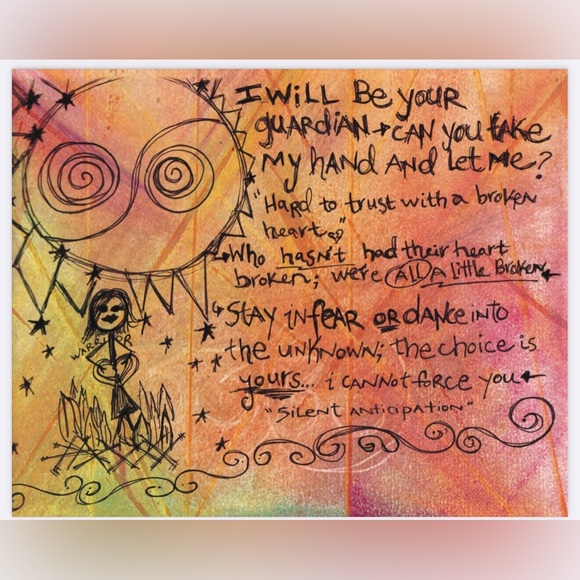 I WiLL Be your
guARDiAN + CAN you take
My hand AND Let Me?
"Hard to trust with a broken
heart"
Who hasn't had their heart
broken; were ALL A Little Broken
Stay in fear or dance into
the unknown; the choice is
yours... i cannot force you
"Silent Anticipation"
WARRIOR